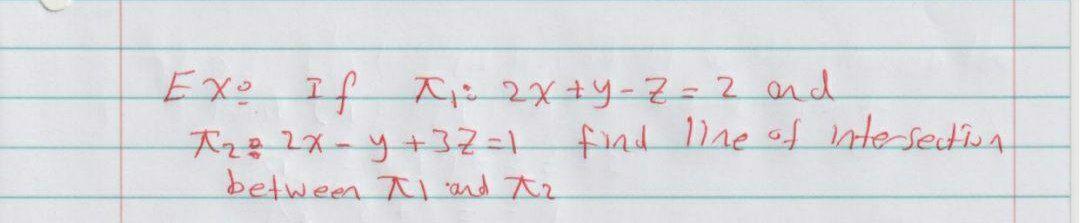 Ex: If π1: 2x+y-z=2 and
π2: 2x-y+3z=1 find line of intersection
between π1 and π2